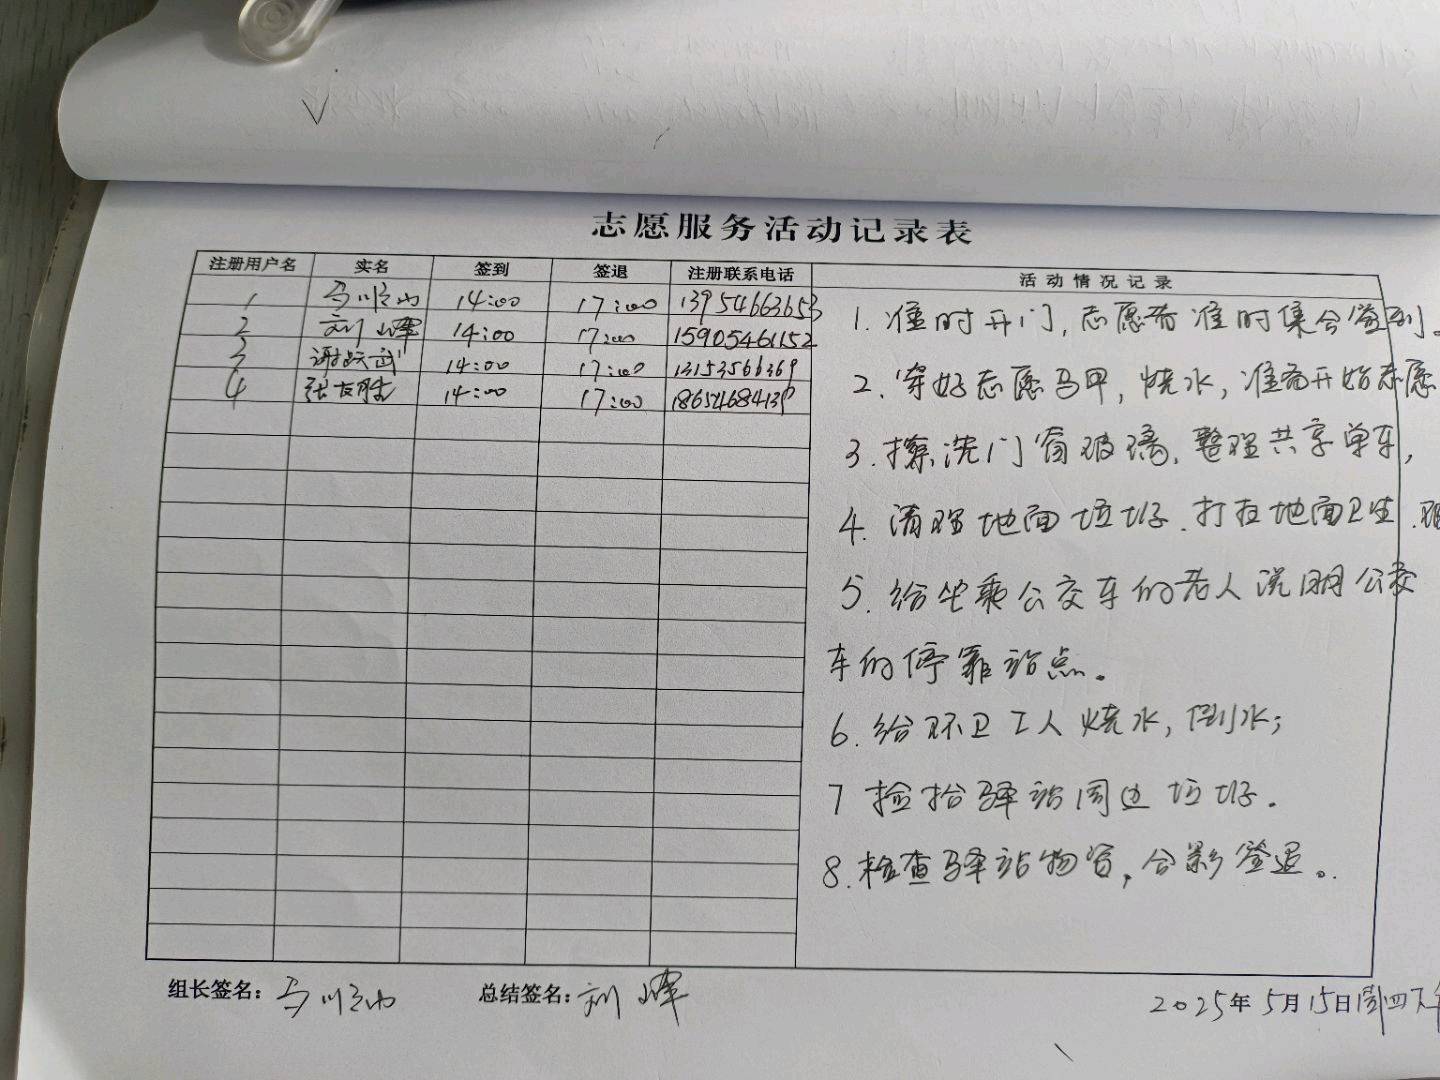 志愿服务活动记录表
注册用户名 实名 签到 签退 注册联系电话 活动情况记录
1 马顺 14:00 17:00 13954663653
2 刘辉 14:00 17:00 15905461152
3 谢跃武 14:00 17:00 13153566369
4 张友胜 14:00 17:00
1. 准时开门, 志愿者准时集合签到。
2. 穿好志愿马甲, 烧水, 准备开始志愿
3. 擦洗门窗玻璃, 整理共享单车,
4. 清理地面垃圾. 打扫地面卫生.
5. 给坐乘公交车的老人说明公交
车的停靠站点。
6. 给环卫工人烧水, 倒水;
7 捡拾驿站周边垃圾.
8. 检查驿站物资, 合影签退。
组长签名: 马顺 总结签名: 刘辉
2025年5月15日周四下